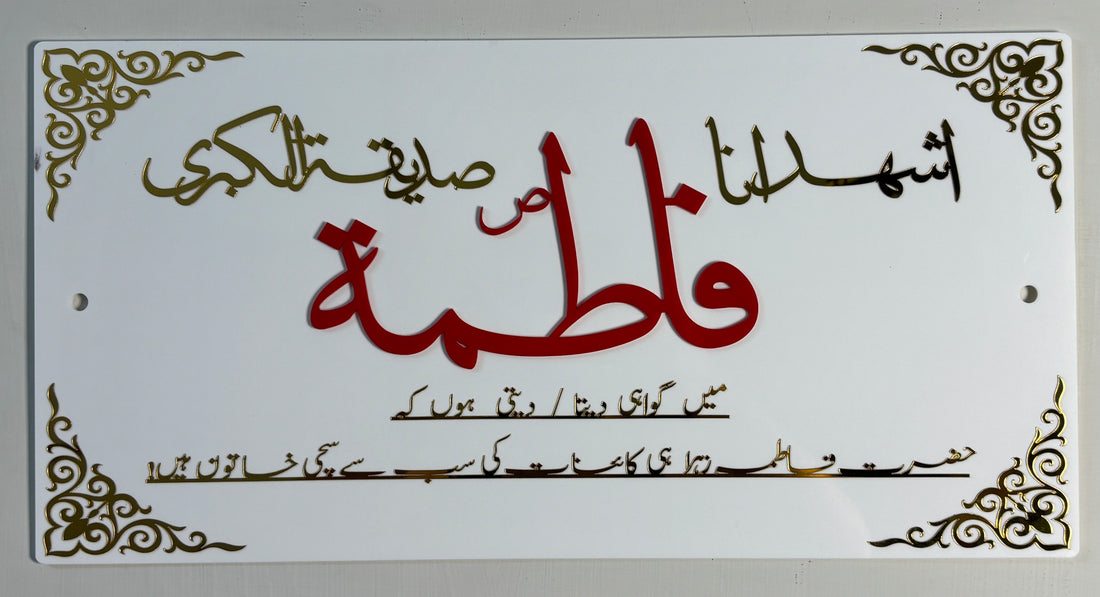 اشهدانا فاطمة ص صدیقة الکبری
میں گواہی دیتا / دیتی ہوں کہ
حضرت فاطمہ زہرا ہی کائنات کی سب سے سچی خاتون ہیں!